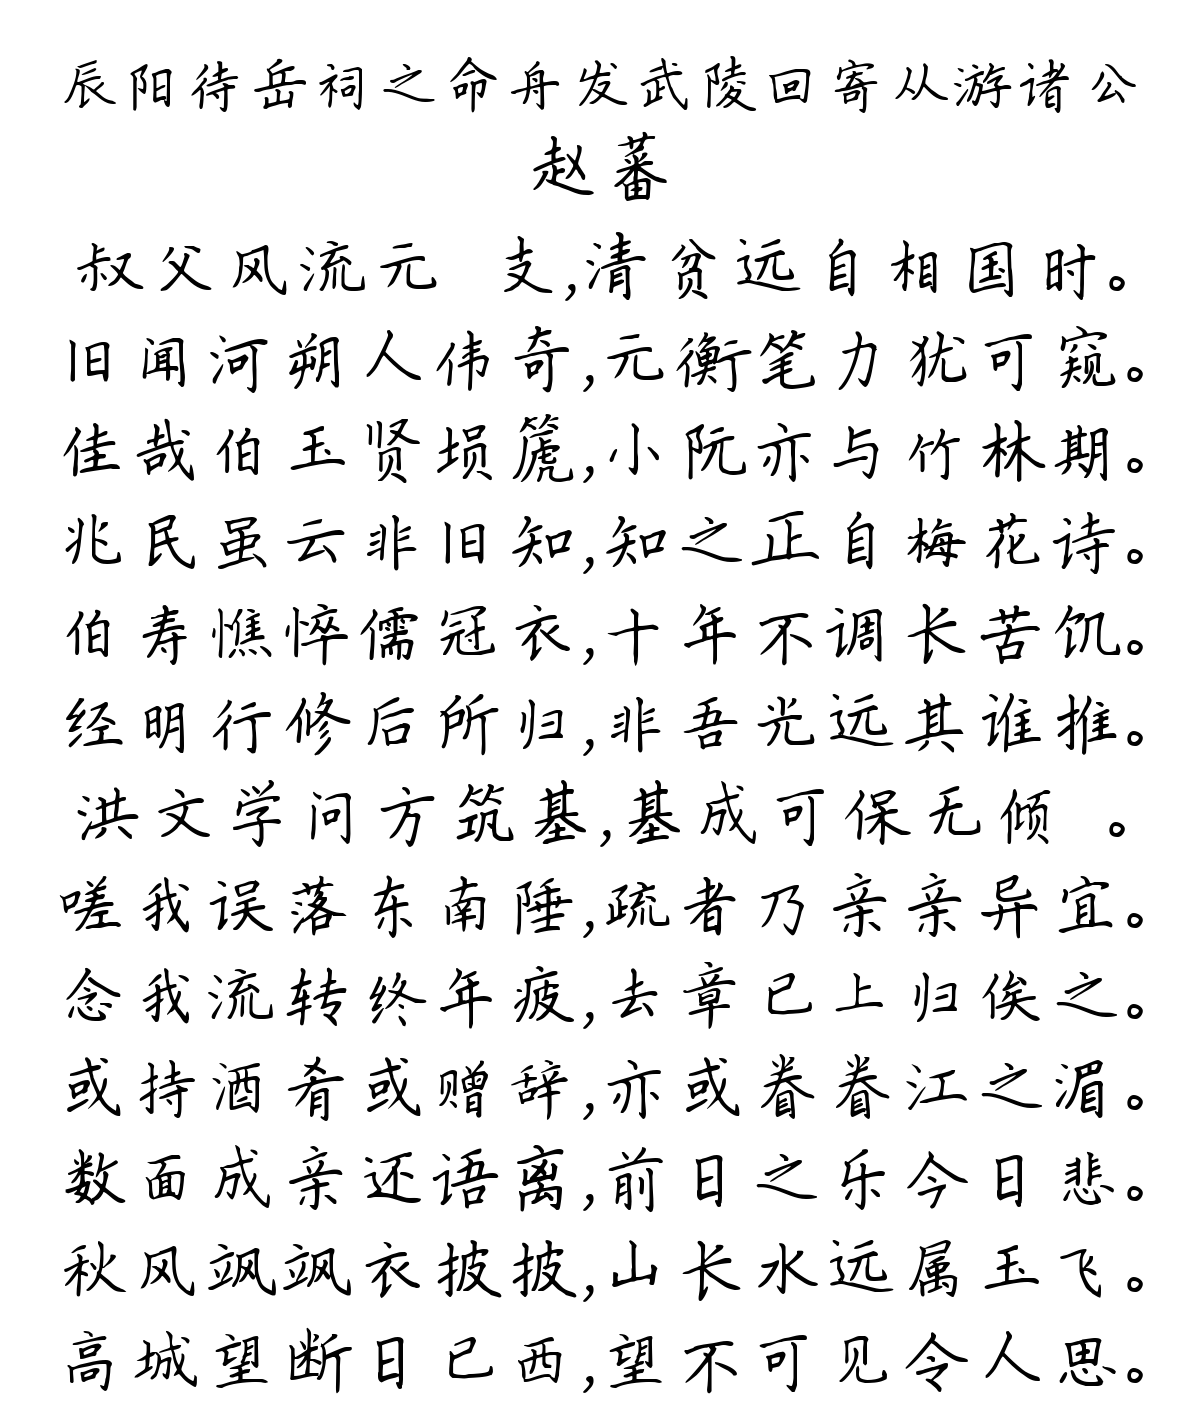 辰阳待岳祠之命舟发武陵回寄从游诸公
赵蕃
叔父风流元 支,清贫远自相国时。
旧闻河朔人伟奇,元衡笔力犹可窥。
佳哉伯玉贤埙篪,小阮亦与竹林期。
兆民虽云非旧知,知之正自梅花诗。
伯寿憔悴儒冠衣,十年不调长苦饥。
经明行修后所归,非吾光远其谁推。
洪文学问方筑基,基成可保无倾 。
嗟我误落东南陲,疏者乃亲亲异宜。
念我流转终年疲,去章已上归俟之。
或持酒肴或赠辞,亦或眷眷江之湄。
数面成亲还语离,前日之乐今日悲。
秋风飒飒衣披披,山长水远属玉飞。
高城望断日已西,望不可见令人思。